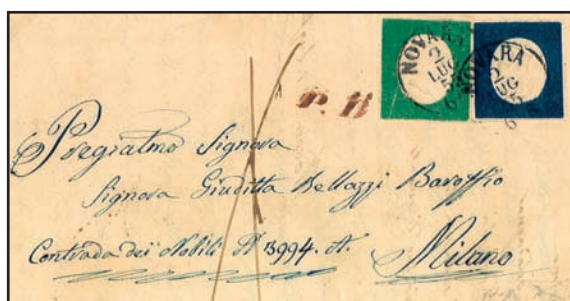 NOVARA
NOVARA
P. B
Pregiatmo Signora
Signora Giuditta Bellazzi Baroffio
Contrada dei Nobili N 3994. A.
Milano